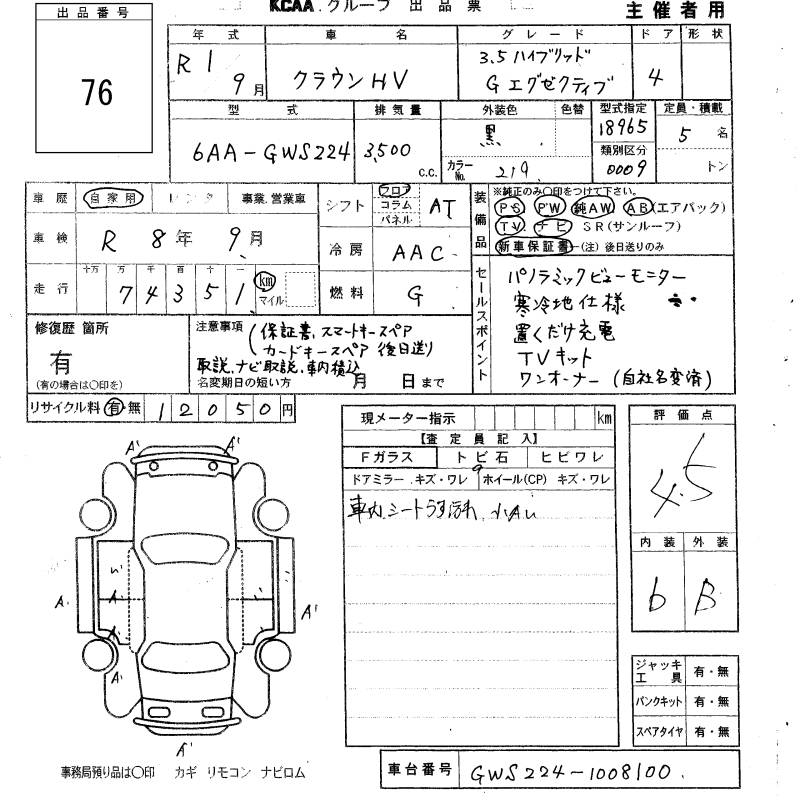 KCAA グループ 出品票
主催者用
出品番号
76
年式 車名 グレード ドア 形状
R1 9月 クラウンHV 3.5ハイブリッド Gエグゼクティブ 4
型式 排気量 外装色 色替 型式指定 定員・積載
6AA-GWS224 3,500 C.C. 黒 18965 5名
カラーNo. 219 類別区分 0009 トン
車歴 自家用 レンタ 事業.営業車
シフト フロア コラム パネル AT
装備品
※純正のみ〇印をつけて下さい。
PS PW 純AW AB(エアバック)
TV ナビ SR(サンルーフ)
新車保証書-(注)後日送りのみ
車検 R 8年 9月
冷房 AAC
走行 十万 万 千 百 十 一
74351 km マイル
燃料 G
セールスポイント
パノラミックビューモニター
寒冷地仕様
置くだけ充電
TVキット
ワンオーナー(自社名変済)
修復歴 箇所
有
(有の場合は〇印を)
注意事項
(保証書、スマートキースペア
カードキースペア 後日送り
取説、ナビ取説、車内積込
名変期日の短い方 月 日まで
リサイクル料 有・無 12050円
現メーター指示 km
【査定員記入】
Fガラス トビ石 ヒビワレ
ドアミラー キズ・ワレ ホイール(CP) キズ・ワレ
車内、シートうすよごれ、小Aい
評価点
4.5
内装 外装
b B
A' A'
A. A A'
A'
A'
A'
ジャッキ工具 有・無
パンクキット 有・無
スペアタイヤ 有・無
事務局預り品は〇印 カギ リモコン ナビロム
車台番号 GWS224-1008100